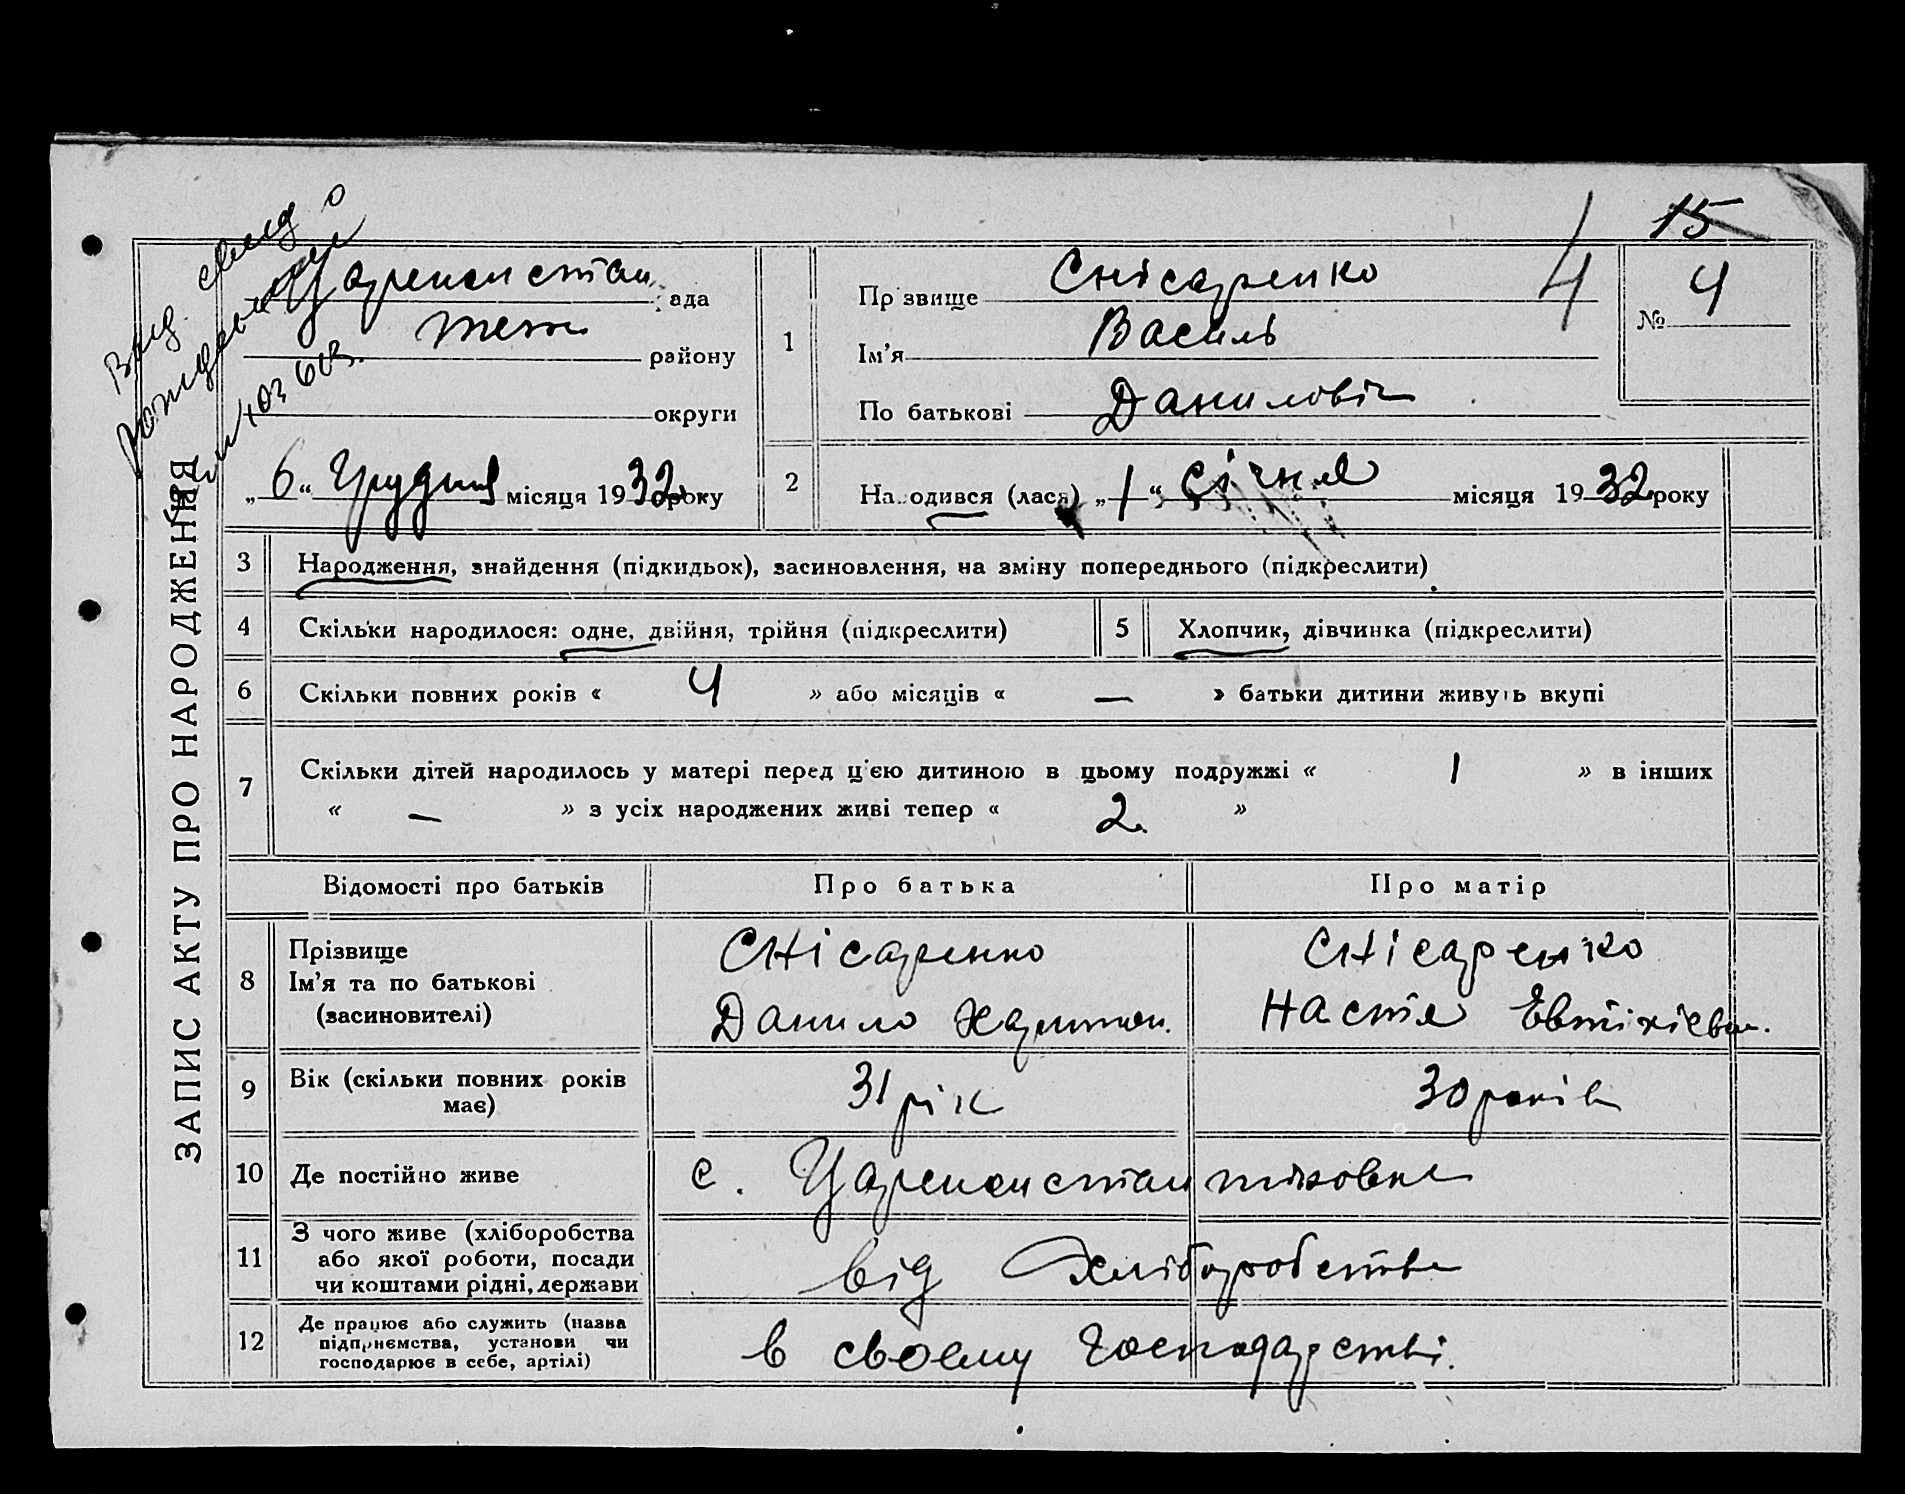 15
Вид. свид о
рождении
ЗАПИС АКТУ ПРО НАРОДЖЕННЯ
Цареконстан рада
теж району
округи
„6“ Грудня місяця 1932 року
1
Прізвище Снісаренко
Ім'я Василь
По батькові Данилович
4
№ 4
2
Народився (лася) „1“ Січня місяця 1932 року
3 Народження, знайдення (підкидьок), засиновлення, на зміну попереднього (підкреслити)
4 Скільки народилося: одне, двійня, трійня (підкреслити) 5 Хлопчик, дівчинка (підкреслити)
6 Скільки повних років « 4 » або місяців « — » батьки дитини живуть вкупі
7 Скільки дітей народилось у матері перед ц'єю дитиною в цьому подружжі « 1 » в інших
« — » з усіх народжених живі тепер « 2 »
Відомості про батьків Про батька Про матір
8 Прізвище Снісаренко Снісаренко
Ім'я та по батькові Данило Харитон. Настя Евтіхієвн.
(засиновителі)
9 Вік (скільки повних років має) 31 рік 30 років
10 Де постійно живе с. Цареконстантиновка
11 З чого живе (хліборобства
або якої роботи, посади від хліборобства
чи коштами рідні, держави
12 Де працює або служить (назва
підприємства, установи чи в своему господарстві.
господарює в себе, артілі)